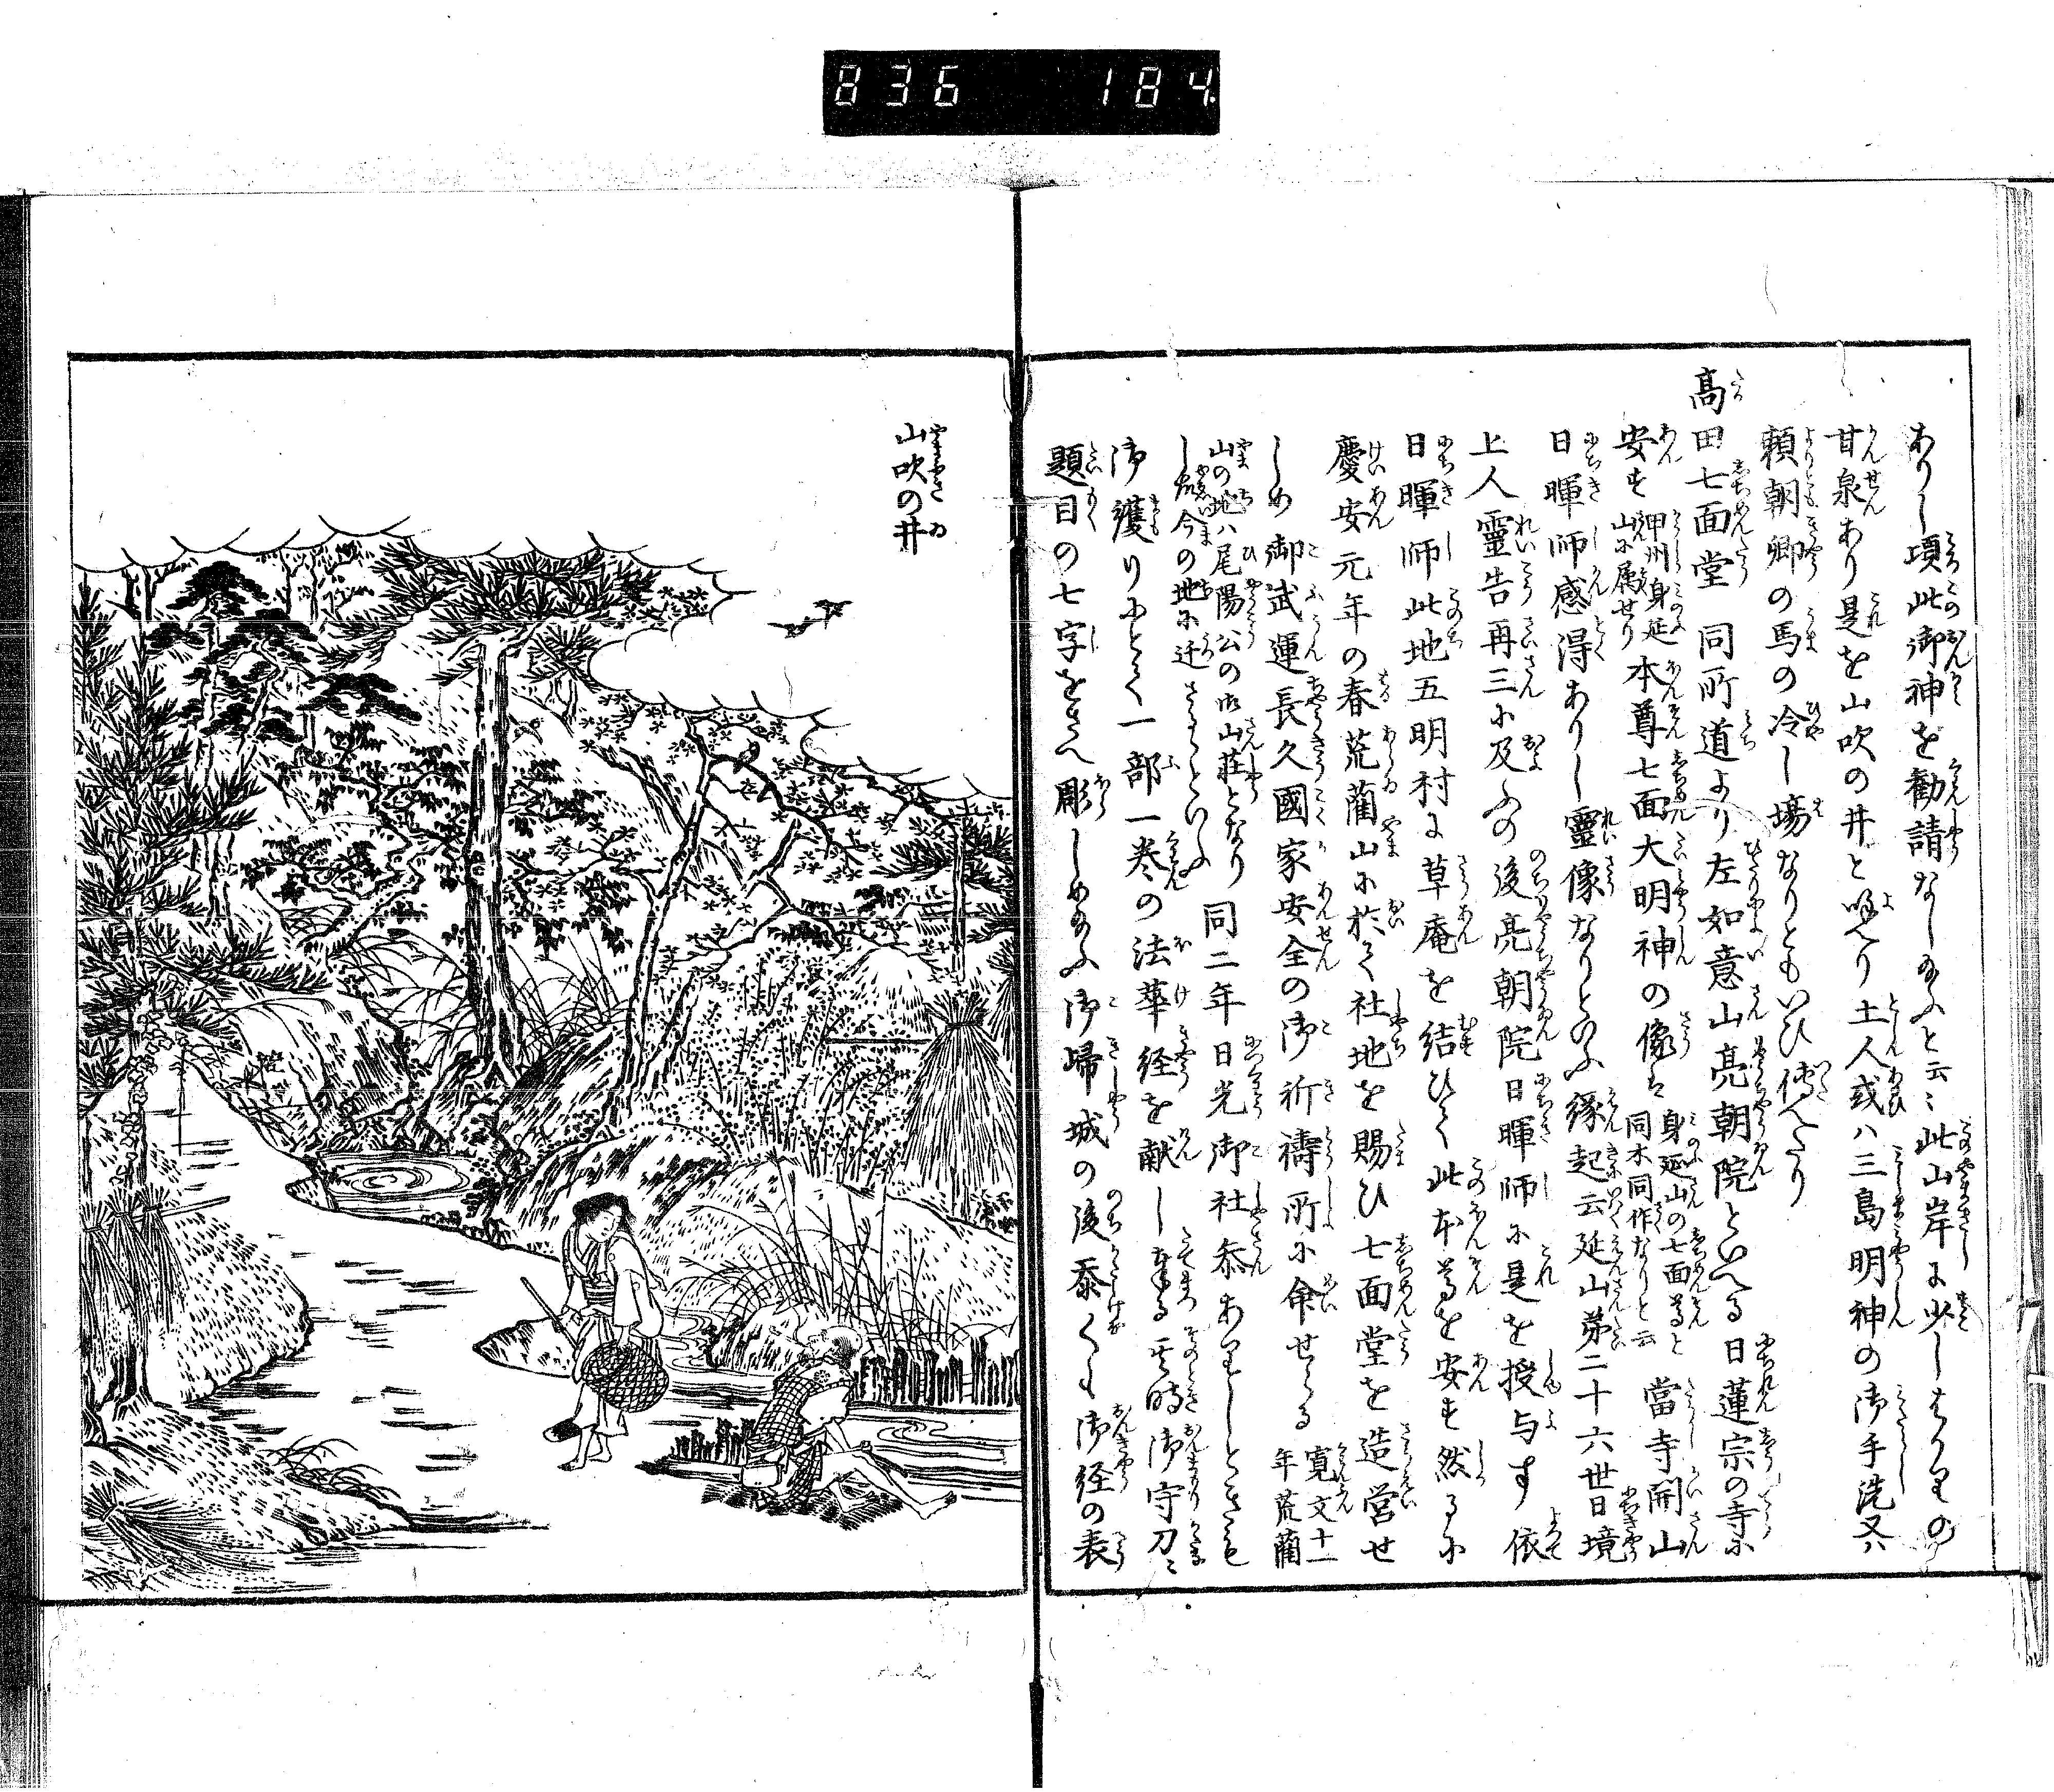 836 184
ありし頃此御神を勧請なし給ふと云〻此山岸に少しはかりの
甘泉あり是を山吹の井と喚へり土人或ハ三島明神の御手洗又ハ
頼朝卿の馬の冷し場なりともいひ傳へたり
高田七面堂 同所道より左如意山亮朝院といへる日蓮宗の寺に
安す 甲州身延山に属せり 本尊七面大明神の像は 身延山の七面尊と同木同作なりと云 當寺開山
日暉師感得ありし靈像なりといふ縁起云延山第二十六世日境
上人靈告再三に及ふの後亮朝院日暉師に是を授与す依
日暉師此地五明村に草庵を結ひて此本尊を安す然るに
慶安元年の春荒藺山に於て社地を賜ひ七面堂を造営せ
しめ御武運長久國家安全の御祈禱所に命せらる 寛文十一年荒藺
山の地ハ尾陽公の御山荘となりし故今の地に迁さるゝといふ 同二年日光御社参あらせしときも
御護りふとて一部一巻の法華経を献し奉る其時御守刀〻
題目の七字をさへ彫しめ給ふ御帰城の後忝くも御経の表
山吹の井